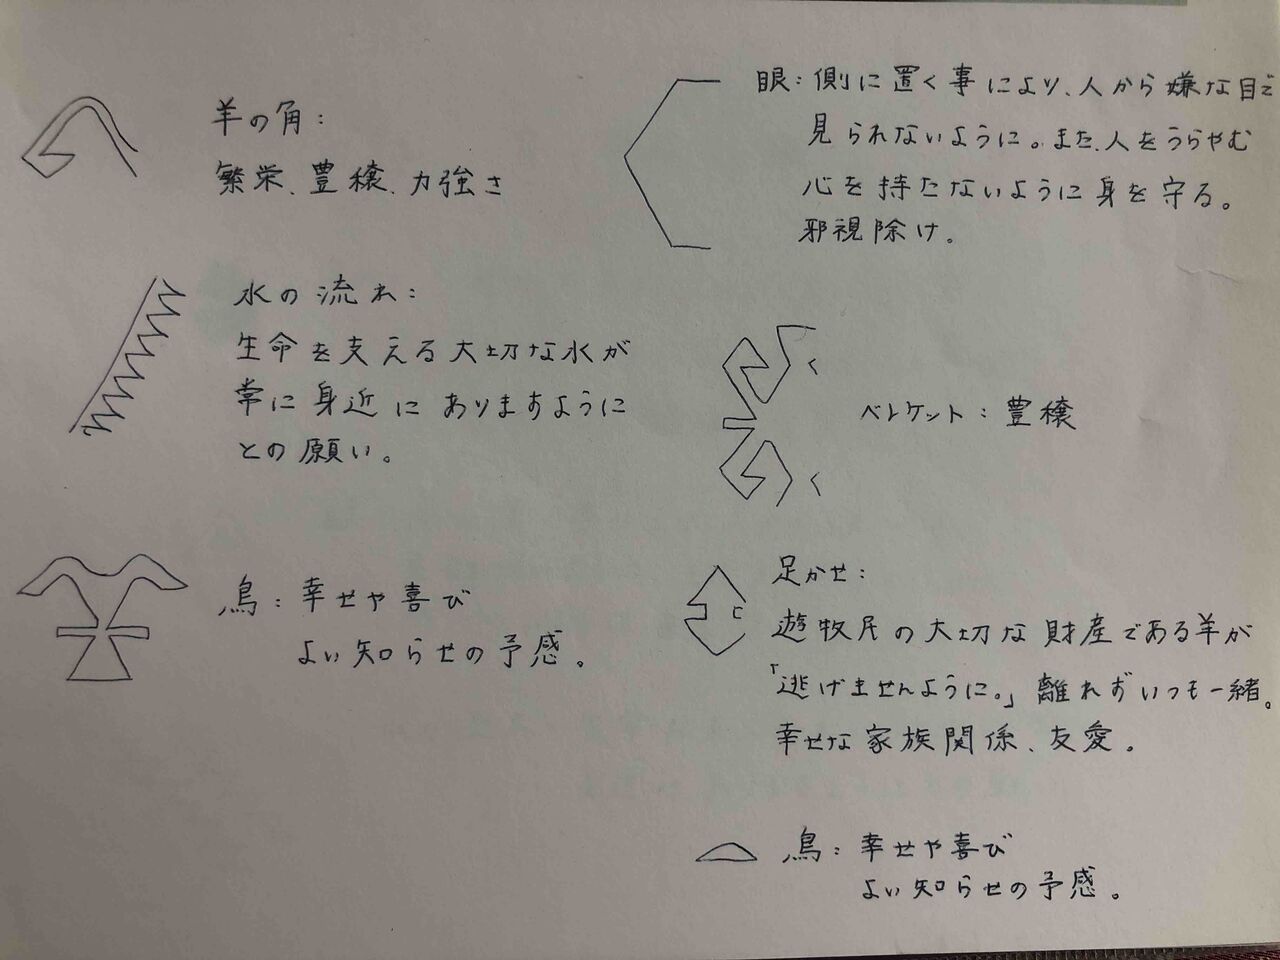 羊の角：
繁栄、豊穣、力強さ
水の流れ：
生命を支える大切な水が
常に身近にありますように
との願い。
鳥：幸せや喜び
よい知らせの予感。
眼：側に置く事により、人から嫌な目で
見られないように。また、人をうらやむ
心を持たないように身を守る。
邪視除け。
ベレケット：豊穣
足かせ：
遊牧民の大切な財産である羊が
「逃げませんように。」離れずいつも一緒。
幸せな家族関係、友愛。
鳥：幸せや喜び
よい知らせの予感。